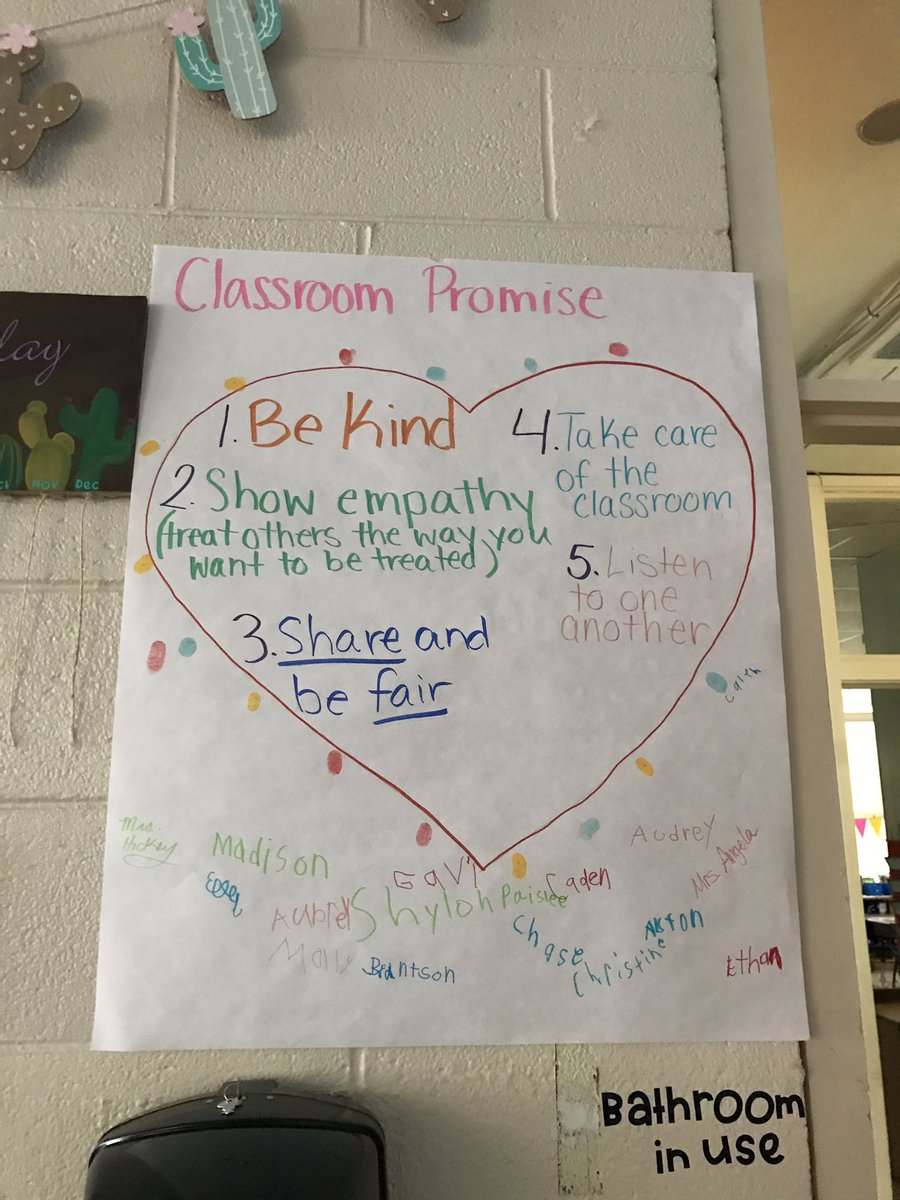 Classroom Promise
1. Be Kind
2. Show empathy
(treat others the way you
want to be treated)
3. Share and
be fair
4. Take care
of the
classroom
5. Listen
to one
another
Caleb
Mrs.
Madison
Gavi
Caden
Audrey
Mrs. Angela
Aubrey
Shyloh
Paislee
Chase
Christine
Brantson
Ethan
lay
NOV
Dec
Bathroom
in use